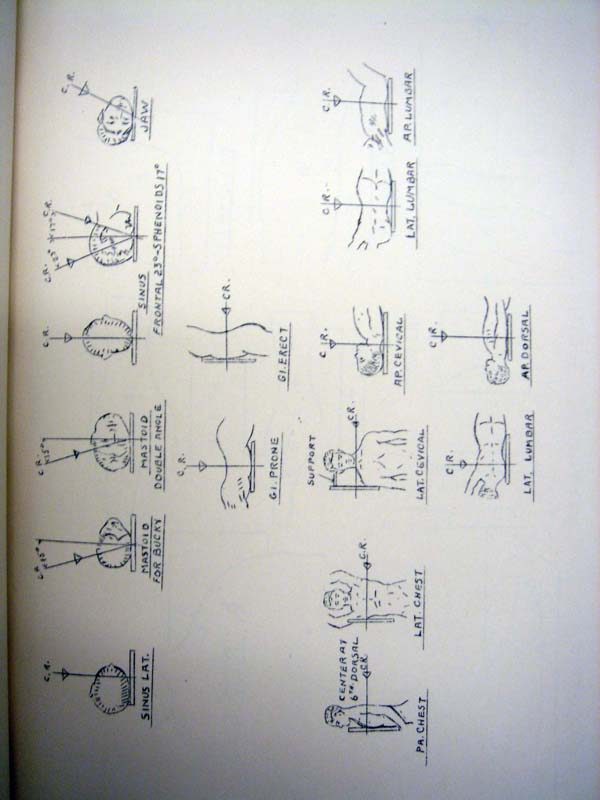 C.R.
SINUS LAT.
C.R.
MASTOID
FOR BUCKY
C.R.
15°
MASTOID
DOUBLE ANGLE
C.R.
C.R.
23°
C.R.
17°
SINUS
FRONTAL 23°-SPHENOIDS 17°
C.R.
JAW
C.R.
GI. PRONE
C.R.
GI. ERECT
CENTER AT
6TH DORSAL
C.R.
PA. CHEST
C.R.
LAT. CHEST
SUPPORT
C.R.
LAT. CEVICAL
C.R.
AP. CEVICAL
C.R.
LAT. LUMBAR
C.R.
AP. LUMBAR
C.R.
LAT. LUMBAR
C.R.
AP. DORSAL